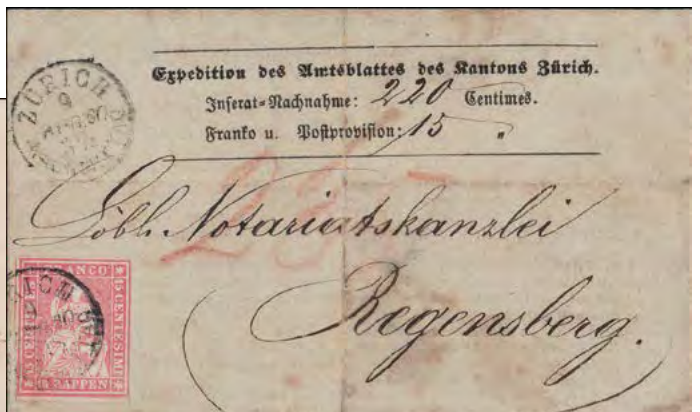 ZÜRICH
9
Expedition des Amtsblattes des Kantons Zürich.
Inserat=Nachnahme: 220 Centimes.
Franko u. Postprovision: 15 "
235
Löbl. Notariatskanzlei
Regensberg.
FRANCO
15 CENTESIMI
15 RAPPEN